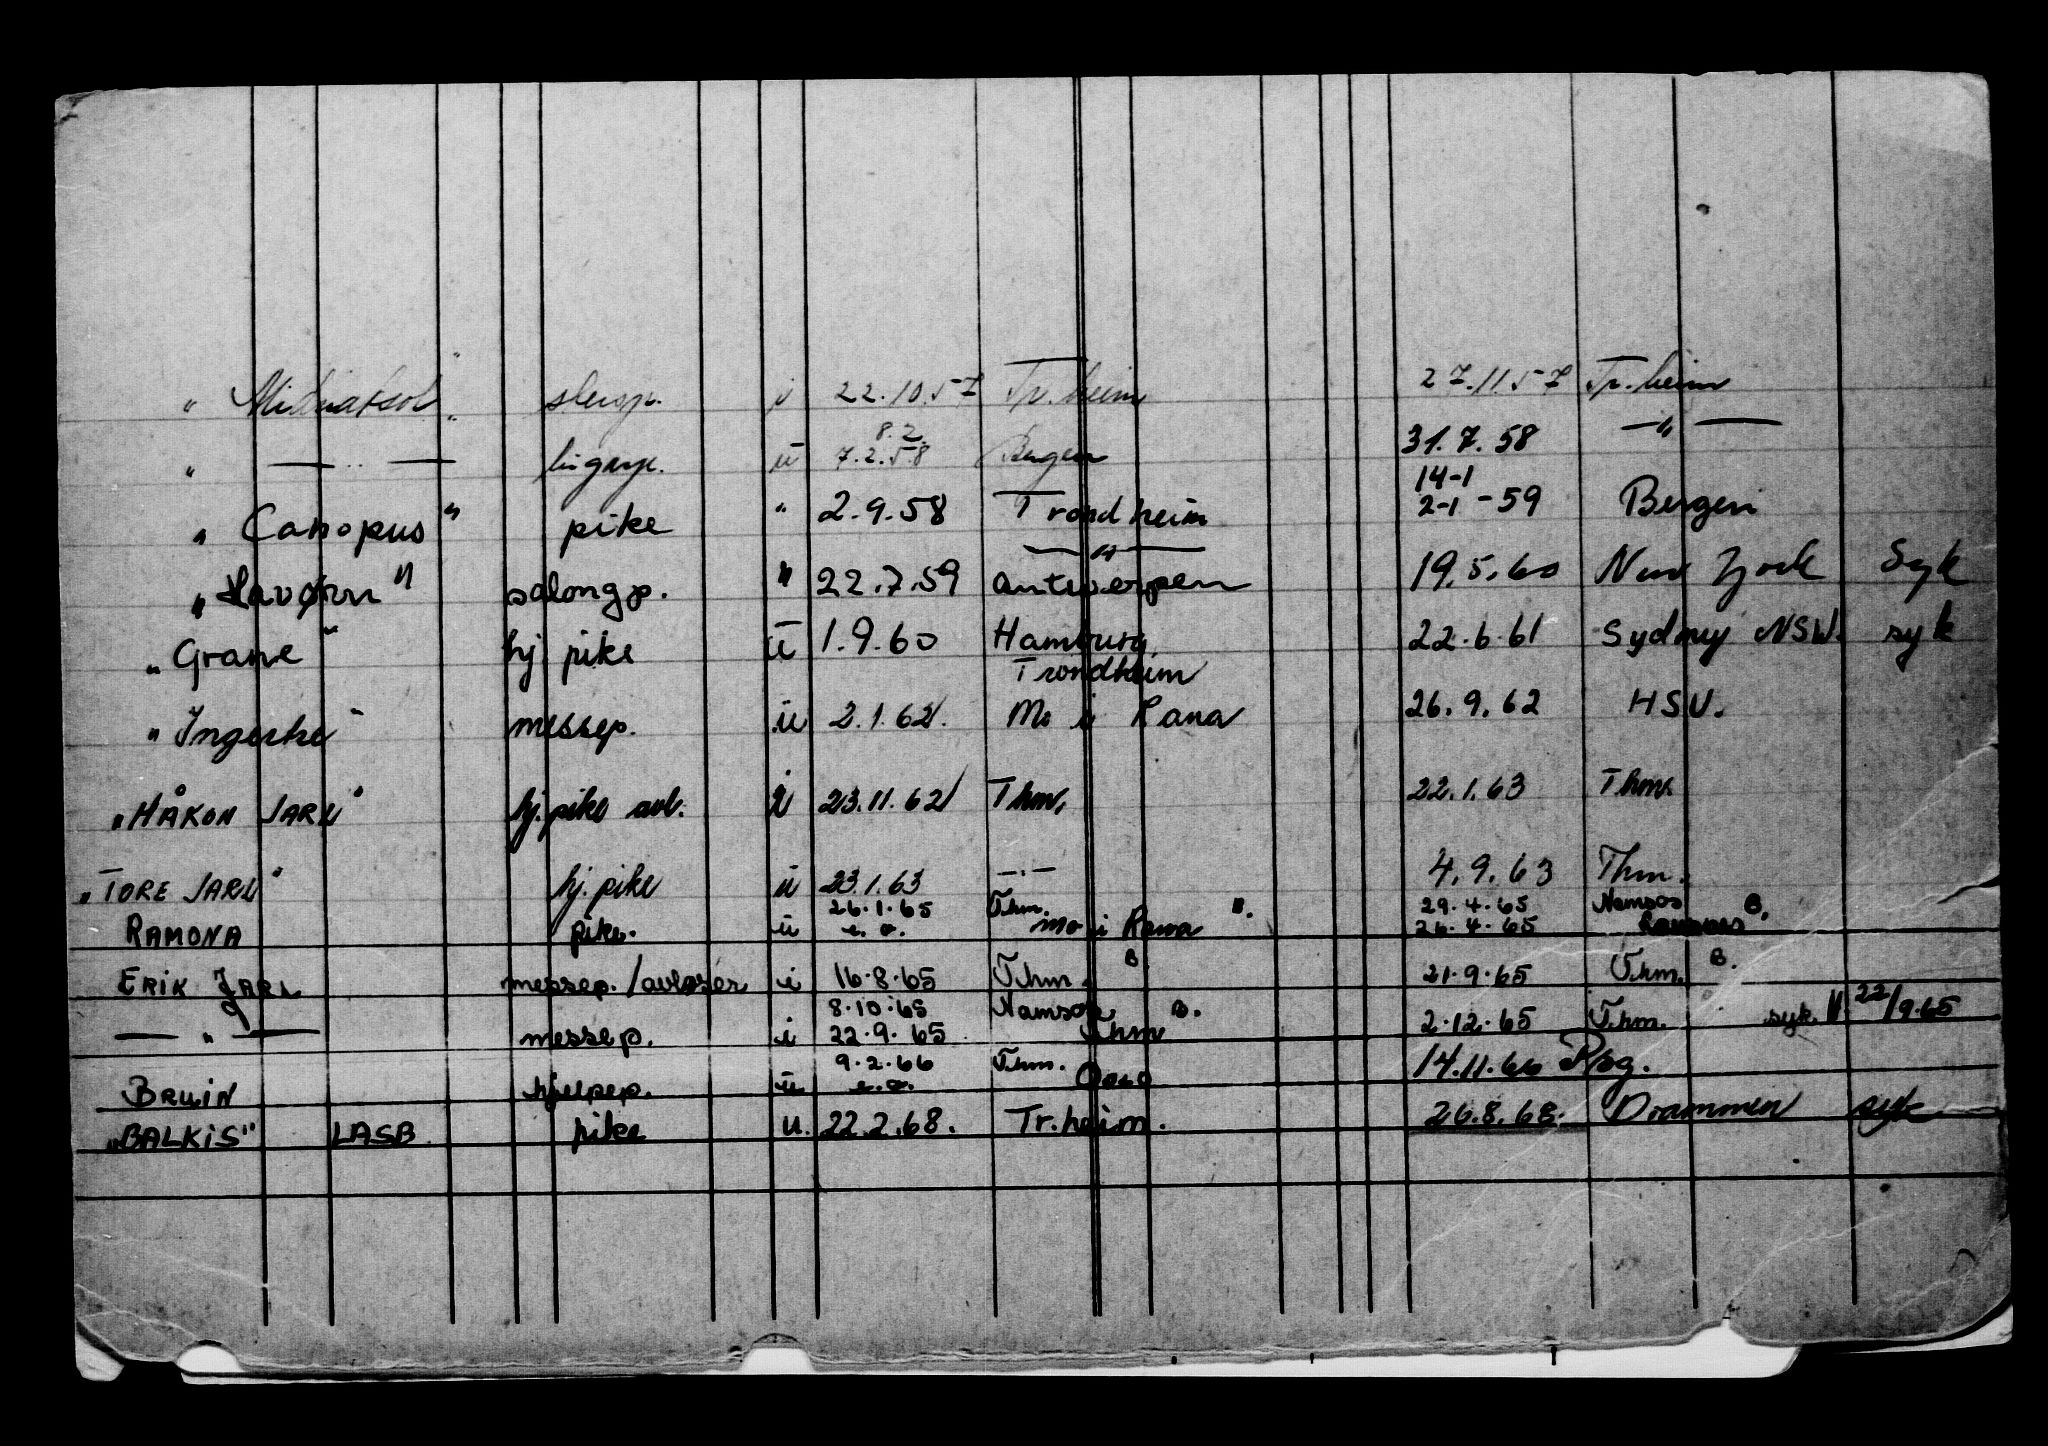 " Midnatsol " i 22.10.57 Tr.heim 27.11.57 Tr.heim
" — " — ü 8.2. 7.2.58 Bergen 31.7.58 — " —
" Canopus " pike " 2.9.58 Trondheim 14-1 2-1-59 Bergen
— " —
" Havørn " salongp. " 22.7.59 Antwerpen 19.5.60 New York Syk
" Grane " hj pike ü 1.9.60 Hamburg 22.6.61 Sydney NSW. syk
Trondheim
messep. ü 2.1.62. Mo i Rana 26.9.62 HSV.
" HÅKON JARL " hj. pike avl. ü 23.11.62 Thm. 22.1.63 Thm.
" TORE JARL " hj. pike ü 23.1.63 — . — 4.9.63 Thm.
26.1.65 Thm. B. 29.4.65 Namsos B.
RAMONA pike. ü Mo i Rana 26.4.65
ERIK JARL messep./avløser i 16.8.65 Thm. B. 21.9.65 Thm. B.
8.10.65 Namsos B.
— " — messep. i 22.9.65 Thm 2.12.65 Thm. syk. 22/9.65
9.2.66 Thm.
BRUIN hjelpep. ü Oslo 14.11.66
" BALKIS " LASB pike u. 22.2.68. Tr.heim. 26.8.68. Drammen syk